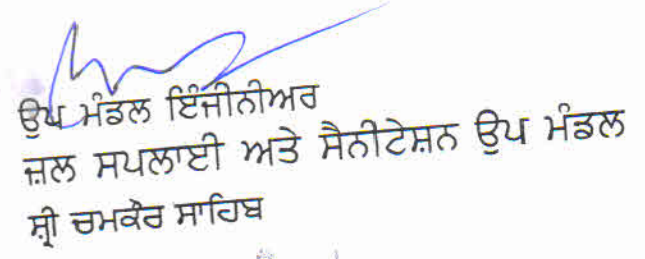 ਉਪ ਮੰਡਲ ਇੰਜੀਨੀਅਰ
ਜ਼ਲ ਸਪਲਾਈ ਅਤੇ ਸੈਨੀਟੇਸ਼ਨ ਉਪ ਮੰਡਲ
ਸ਼੍ਰੀ ਚਮਕੌਰ ਸਾਹਿਬ